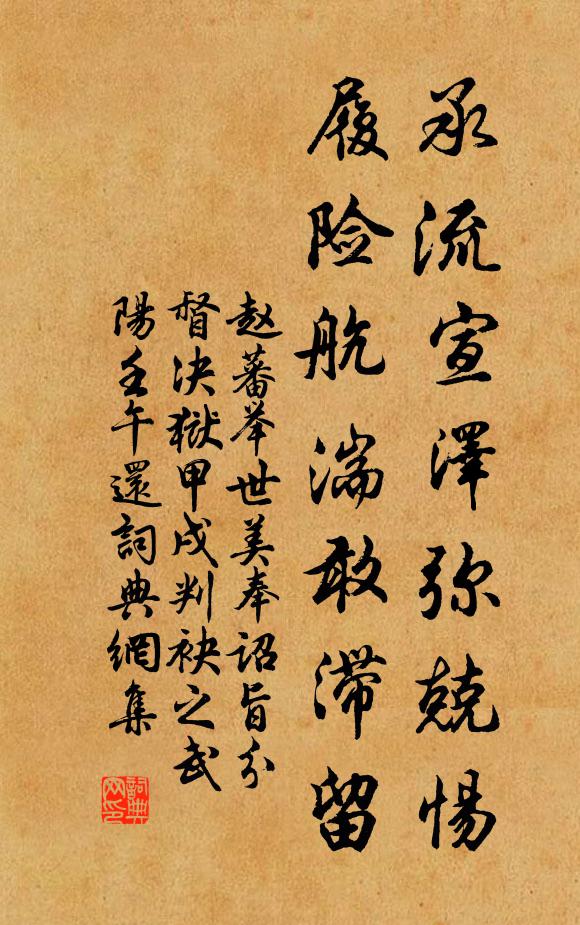 承流宣澤弥兢惕
履险航湍敢滞留
赵蕃举世美奉詔旨分
督决獄甲戌判袂之武
陽壬午還詞典網集
詞典
网印